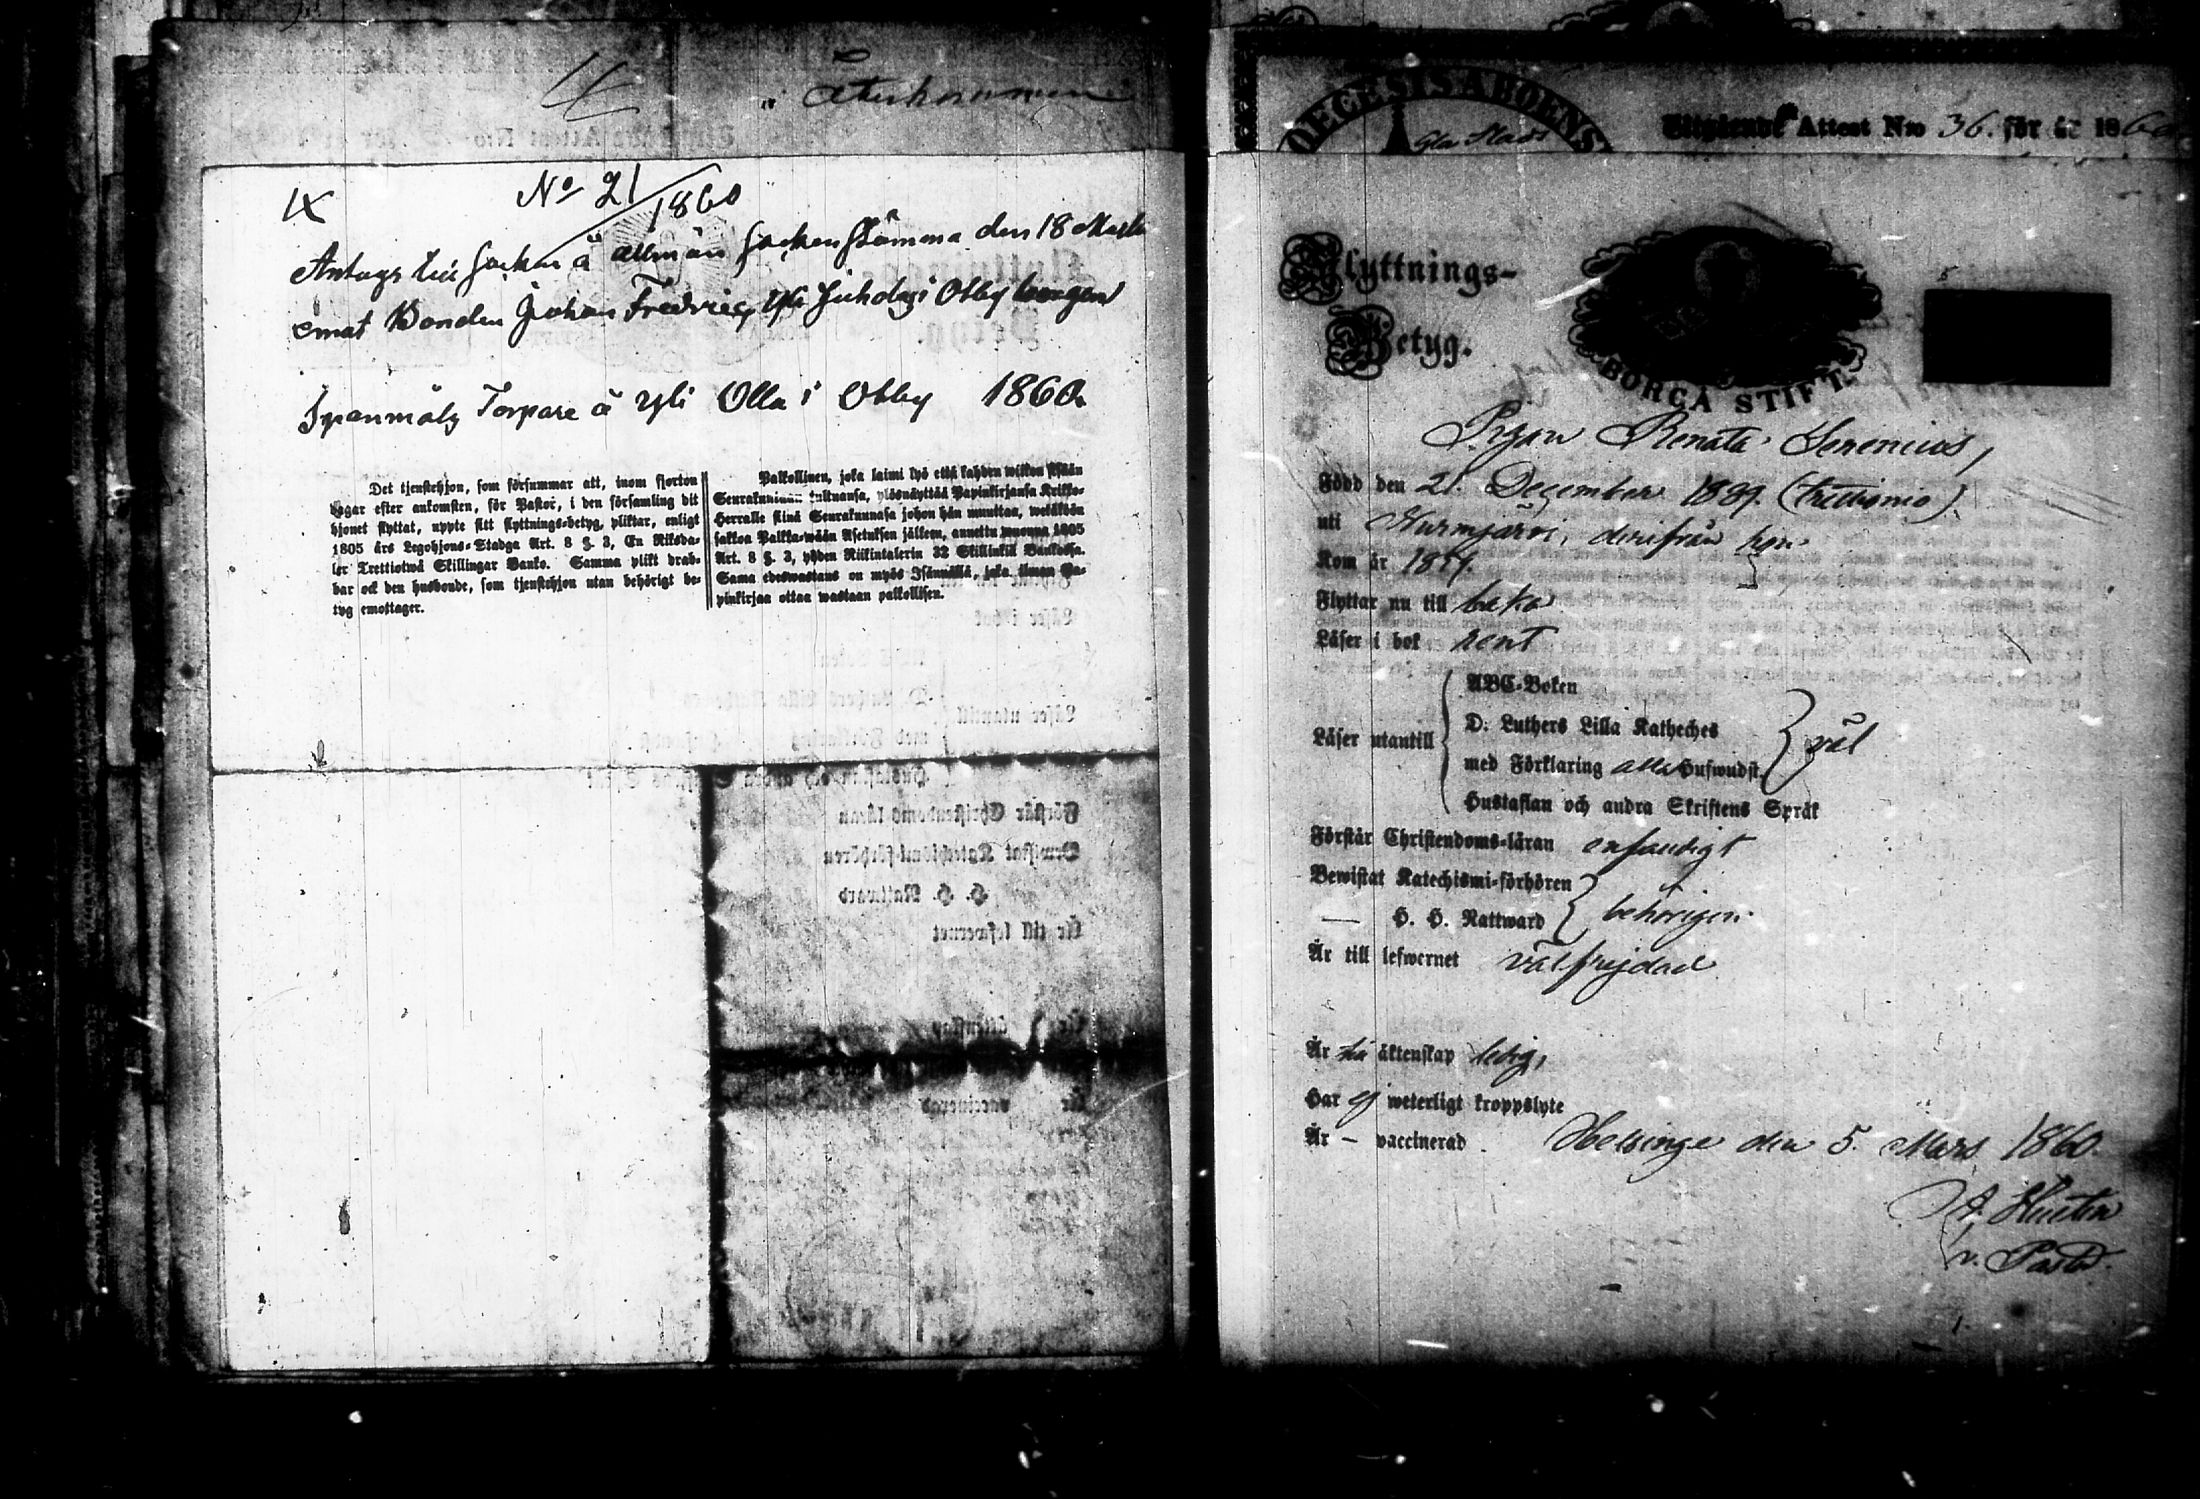 Återkommen
No 21/1860
Antages till socken å allmän Sockenstämma den 18 Mars
emot Bonden Johan Fredric Yli Juhoby i Obby borgen
Torpare å Yli Olla i Obby 1860.
Det tjenstehjon, som försummar att, inom fjorton
dagar efter ankomsten, för Pastor, i den församling dit
hjonet flyttat, uppte sitt flyttnings-betyg, pliktar, enligt
1805 års Legohjons-Stadga Art. 8 §. 3, En Riksda-
ler Trettiotwå Skillingar Banko. Samma plikt drab-
bar ock den husbonde, som tjenstehjon utan behörigt be-
tyg emottager.
Palkollinen, joka laimi lyö että kahden wiikon sisään
Seurakunnaan tultuansa, ylösnäyttää Papinkirjansa Kirkko-
Herralle siinä Seurakunnasa johon hän muuttaa, wetäköön
sakkoa Palkka-wään Asetuksen jälkeen, annettu wuonna 1805
Art. 8 §. 3, yhden Riikintalerin 32 Skillinkiä Bankossa.
Sama edeswastaus on myös Isännällä, joka ilman Pa-
pinkirjaa ottaa wastaan palkollisen.
DIOECESIS ABOENS
Utgående Attest N:o 36. för år 1860
Flyttnings-
Betyg.
BORGÅ STIFT.
Pigan Renata Serenius,
Född den 21. December 1839. (trettionio)
uti Nurmijärvi, derifrån hon
Kom år 1859.
Flyttar nu till baka
Läser i bok rent
Läser utantill
ABC-Boken
D. Luthers Lilla Katheches
med Förklaring alla Hufwudst.
Hustaflan och andra Skriftens Språk
väl
Förstår Christendoms-läran enfaldigt
Bewistat Katechismi-förhören
— H. H. Nattward
behörigen.
Är till lefwernet välfrejdad
Är till äktenskap ledig,
Har ej weterligt kroppslyte
Är – vaccinerad
Helsinge den 5. Mars 1860.
v. Past.